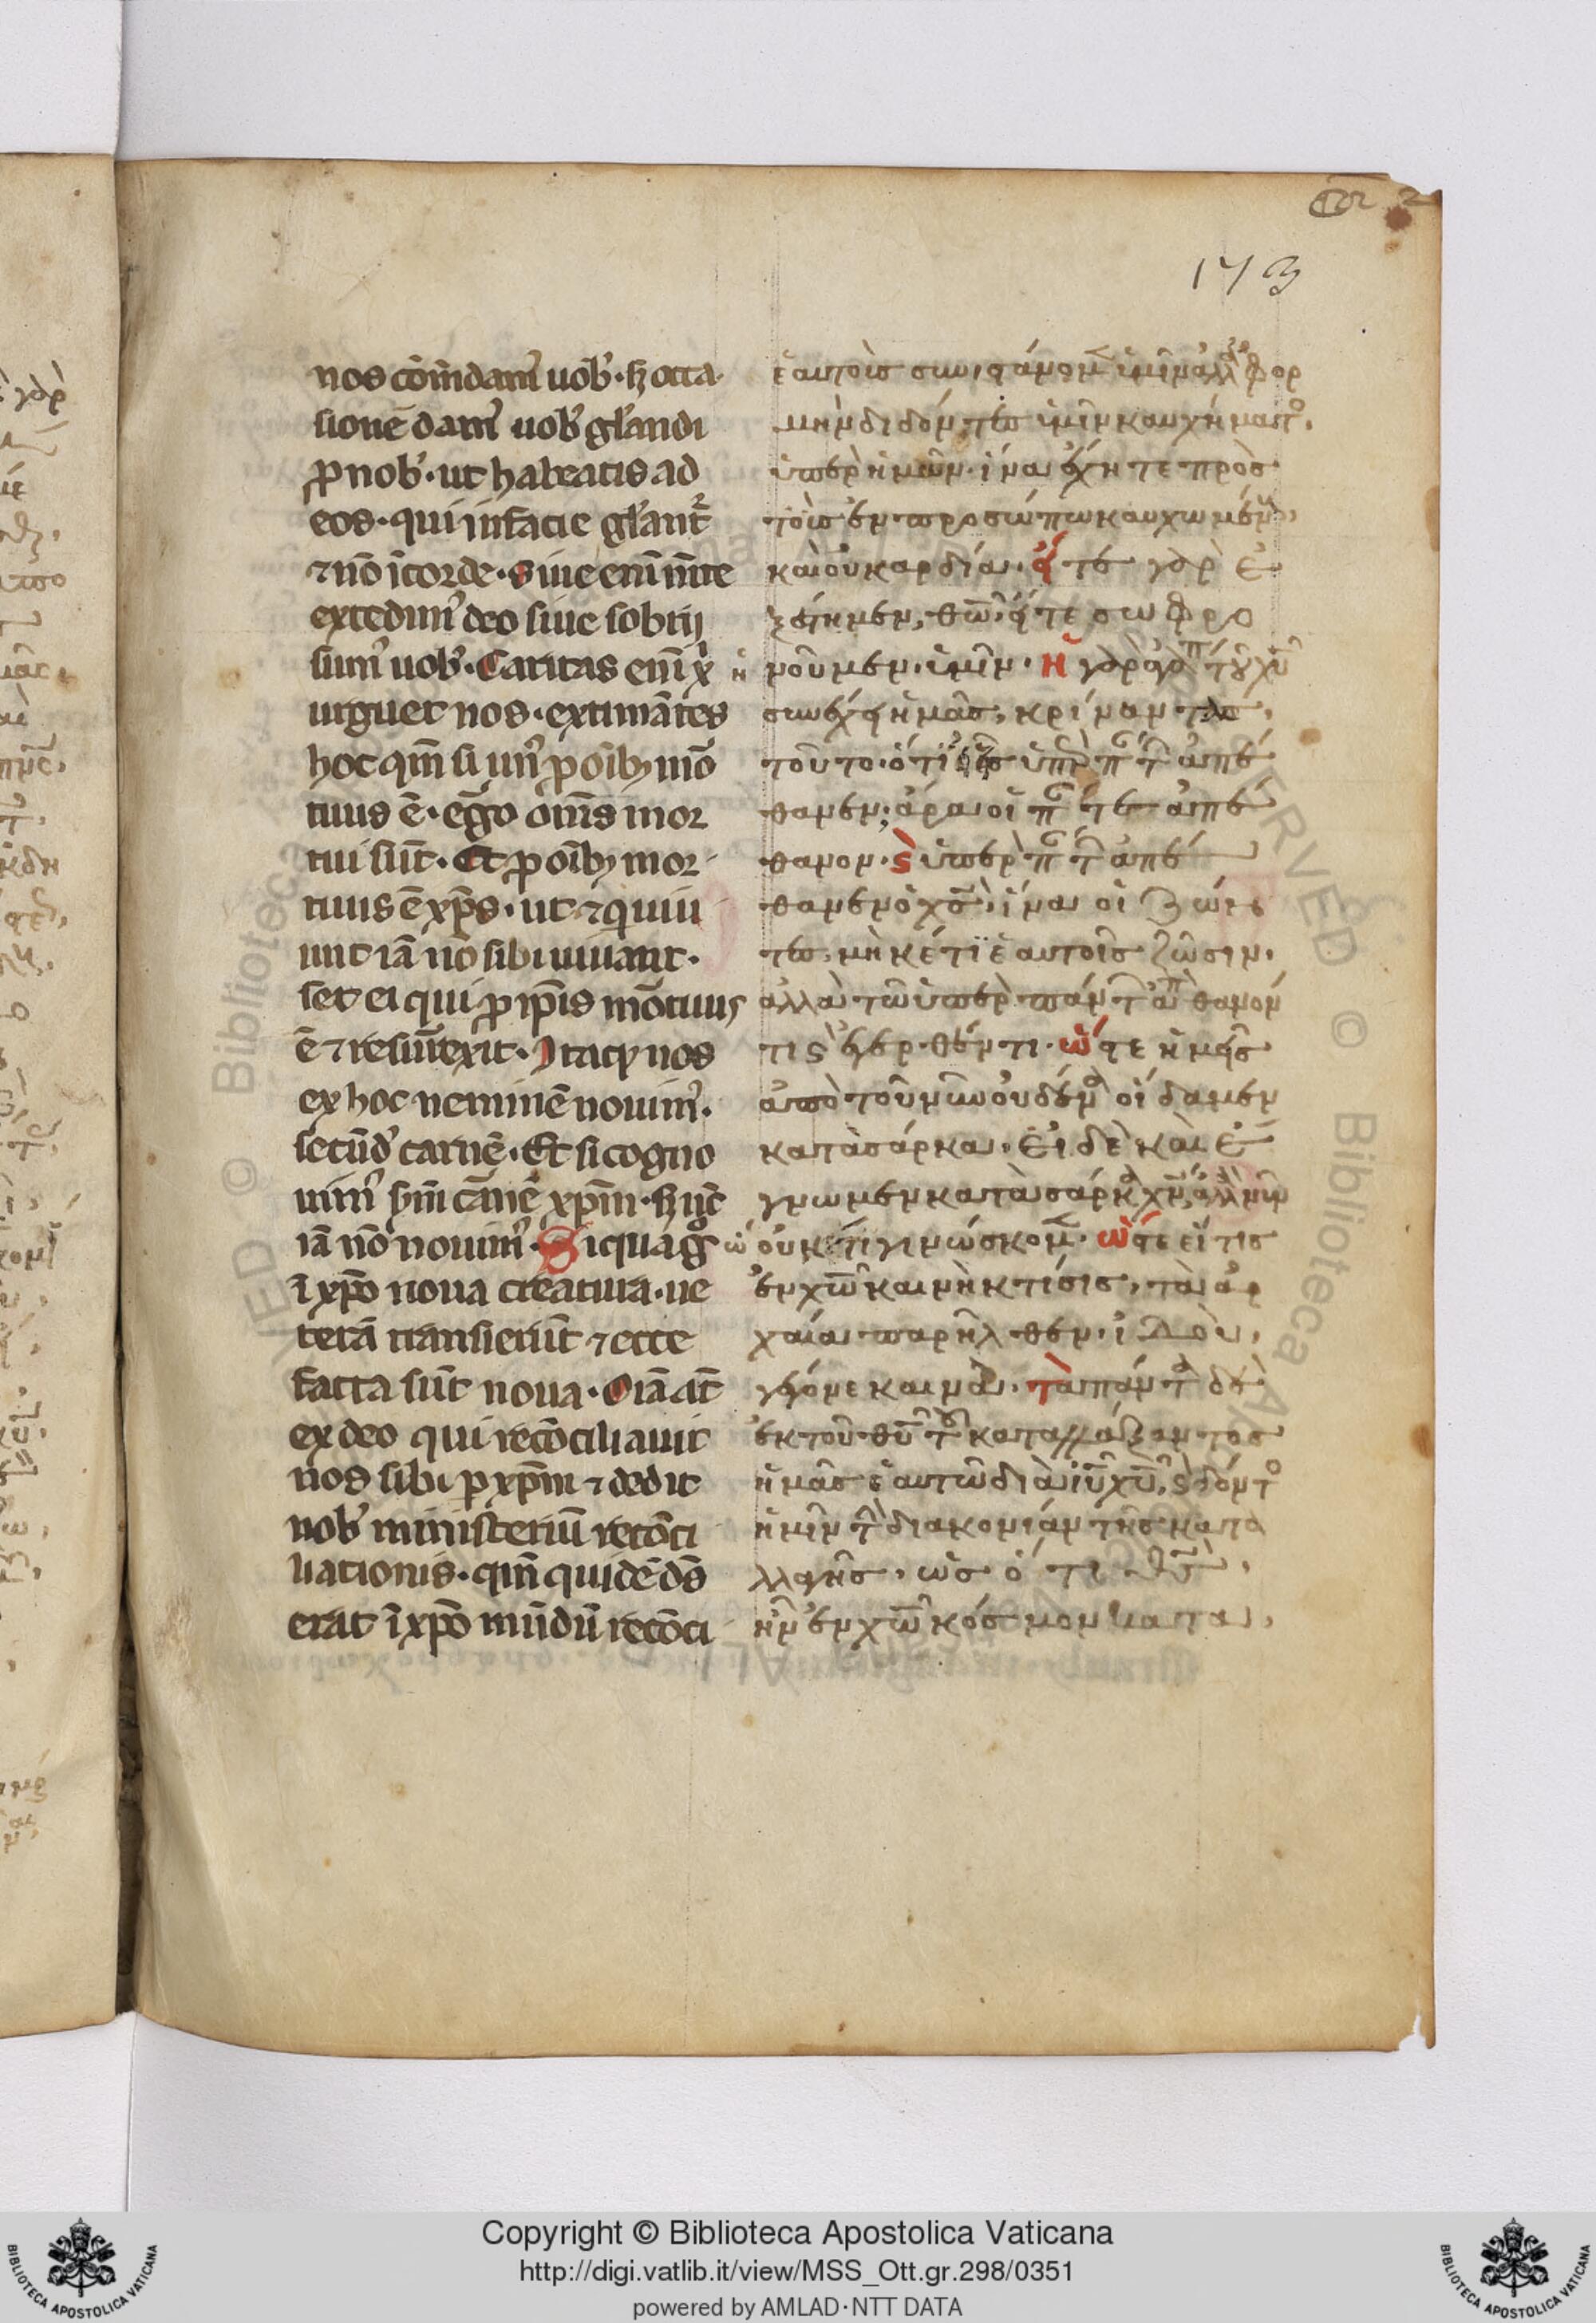 Cor 2
173
nos cōm̄dam᾽ uob᾽. hocca
sionē dam᾽ uob᾽ gl᾽andi
ꝓ nob᾽. ut habeatis ad
eos. qui infacie gl᾽ant᾽
⁊ nō ī corde. Siue enī m̄te
excedim᾽ deo siue sobrij
sum᾽ uob᾽. Caritas enī x̄
urguet nos. extimātes
hoc qm̄ si un᾽ ꝓ oībꝫ mō
tuus ē. ego om̄s mor
tui sūt. Et ꝓ oībꝫ mor
tuus ē xp̄s. ut ⁊ qui uiu
unt iā nō sibi uiuant.
set ei qui ꝓ ip̄is mōtuus
ē ⁊ resurrexit. Itaqꝫ nos
ex hoc neminē nouim᾽.
secūd᾽ carnē. Et si cogno
uim᾽ sm̄ carnē xp̄m. 
iā nō nouim᾽. Siqua gͦ
ī xp̄o noua creatura. ue
tera transierūt ⁊ ecce
facta sūt noua. Oīa aūt
ex deo qui recōciliauit
nos sibi p xp̄m ⁊ dedit
nob᾽ ministeriū recōci
liationis. qm̄ quidē ds̄
erat ī xp̄o mūdū recōci
ἑαυτοὺς συνιστάνομεν ὑμῖν ἀλλ᾽ ἀφορ
μὴν διδόντες ὑμῖν καυχήματος.
ὑπὲρ ἡμῶν. ἵνα ἔχητε πρὸς
τοὺς ἐν προσώπω καυχωμένους,
καὶ οὐ καρδία. εἴτε γὰρ ἐ
ξέστημεν, θω̄. εἴτε σωφρο
νοῦμεν. ὑμῖν. ἡ γὰρ ἀγάπη τοῦ χῡ
συνέχει ἡμᾶς, κρίναντας,
τοῦτο. ὅτι εἷς ὑπὲρ πάντων ἀπέ
θανεν; ἄρα οἱ πάντες ἀπέ
θανον. ϛ ὑπὲρ πάντων ἀπέ
θανεν ὁ χς̄, ἵνα οἱ ζώντες
μηκέτι ἑαυτοῖς ζῶσιν,
ἀλλὰ τῶ ὑπὲρ πάντων ἀποθανόν
τι ϛ ἐγερθέντι. ὥστε ἡμεῖς
ἀπὸ τοῦ νῦν οὐδένα οἴδαμεν
κατὰ σάρκα. εἰ δὲ καὶ ἐ
γνωμεν κατὰ σάρκα χν̄, ἀλλὰ νῦν
οὐκέτι γινώσκομεν. ὥστε εἴ τις
ἐν χω̄ καινὴ κτίσις, τὰ ἀρ
χαία παρῆλθεν. ἰδοὺ,
γέγονε καινά. τὰ πάντα δὲ
ἐκ τοῦ θῡ τοῦ καταλλάξαντος
ἡμᾶς ἑαυτῶ διὰ ιῡ χῡ, ϛ δόντος
ἡμῖν τὴν διακονίαν τῆς κατα
λλαγῆς. ὡς ὅτι θς̄,
ἦν ἐν χω̄ κόσμον κατα,
Copyright © Biblioteca Apostolica Vaticana
http://digi.vatlib.it/view/MSS_Ott.gr.298/0351
powered by AMLAD·NTT DATA